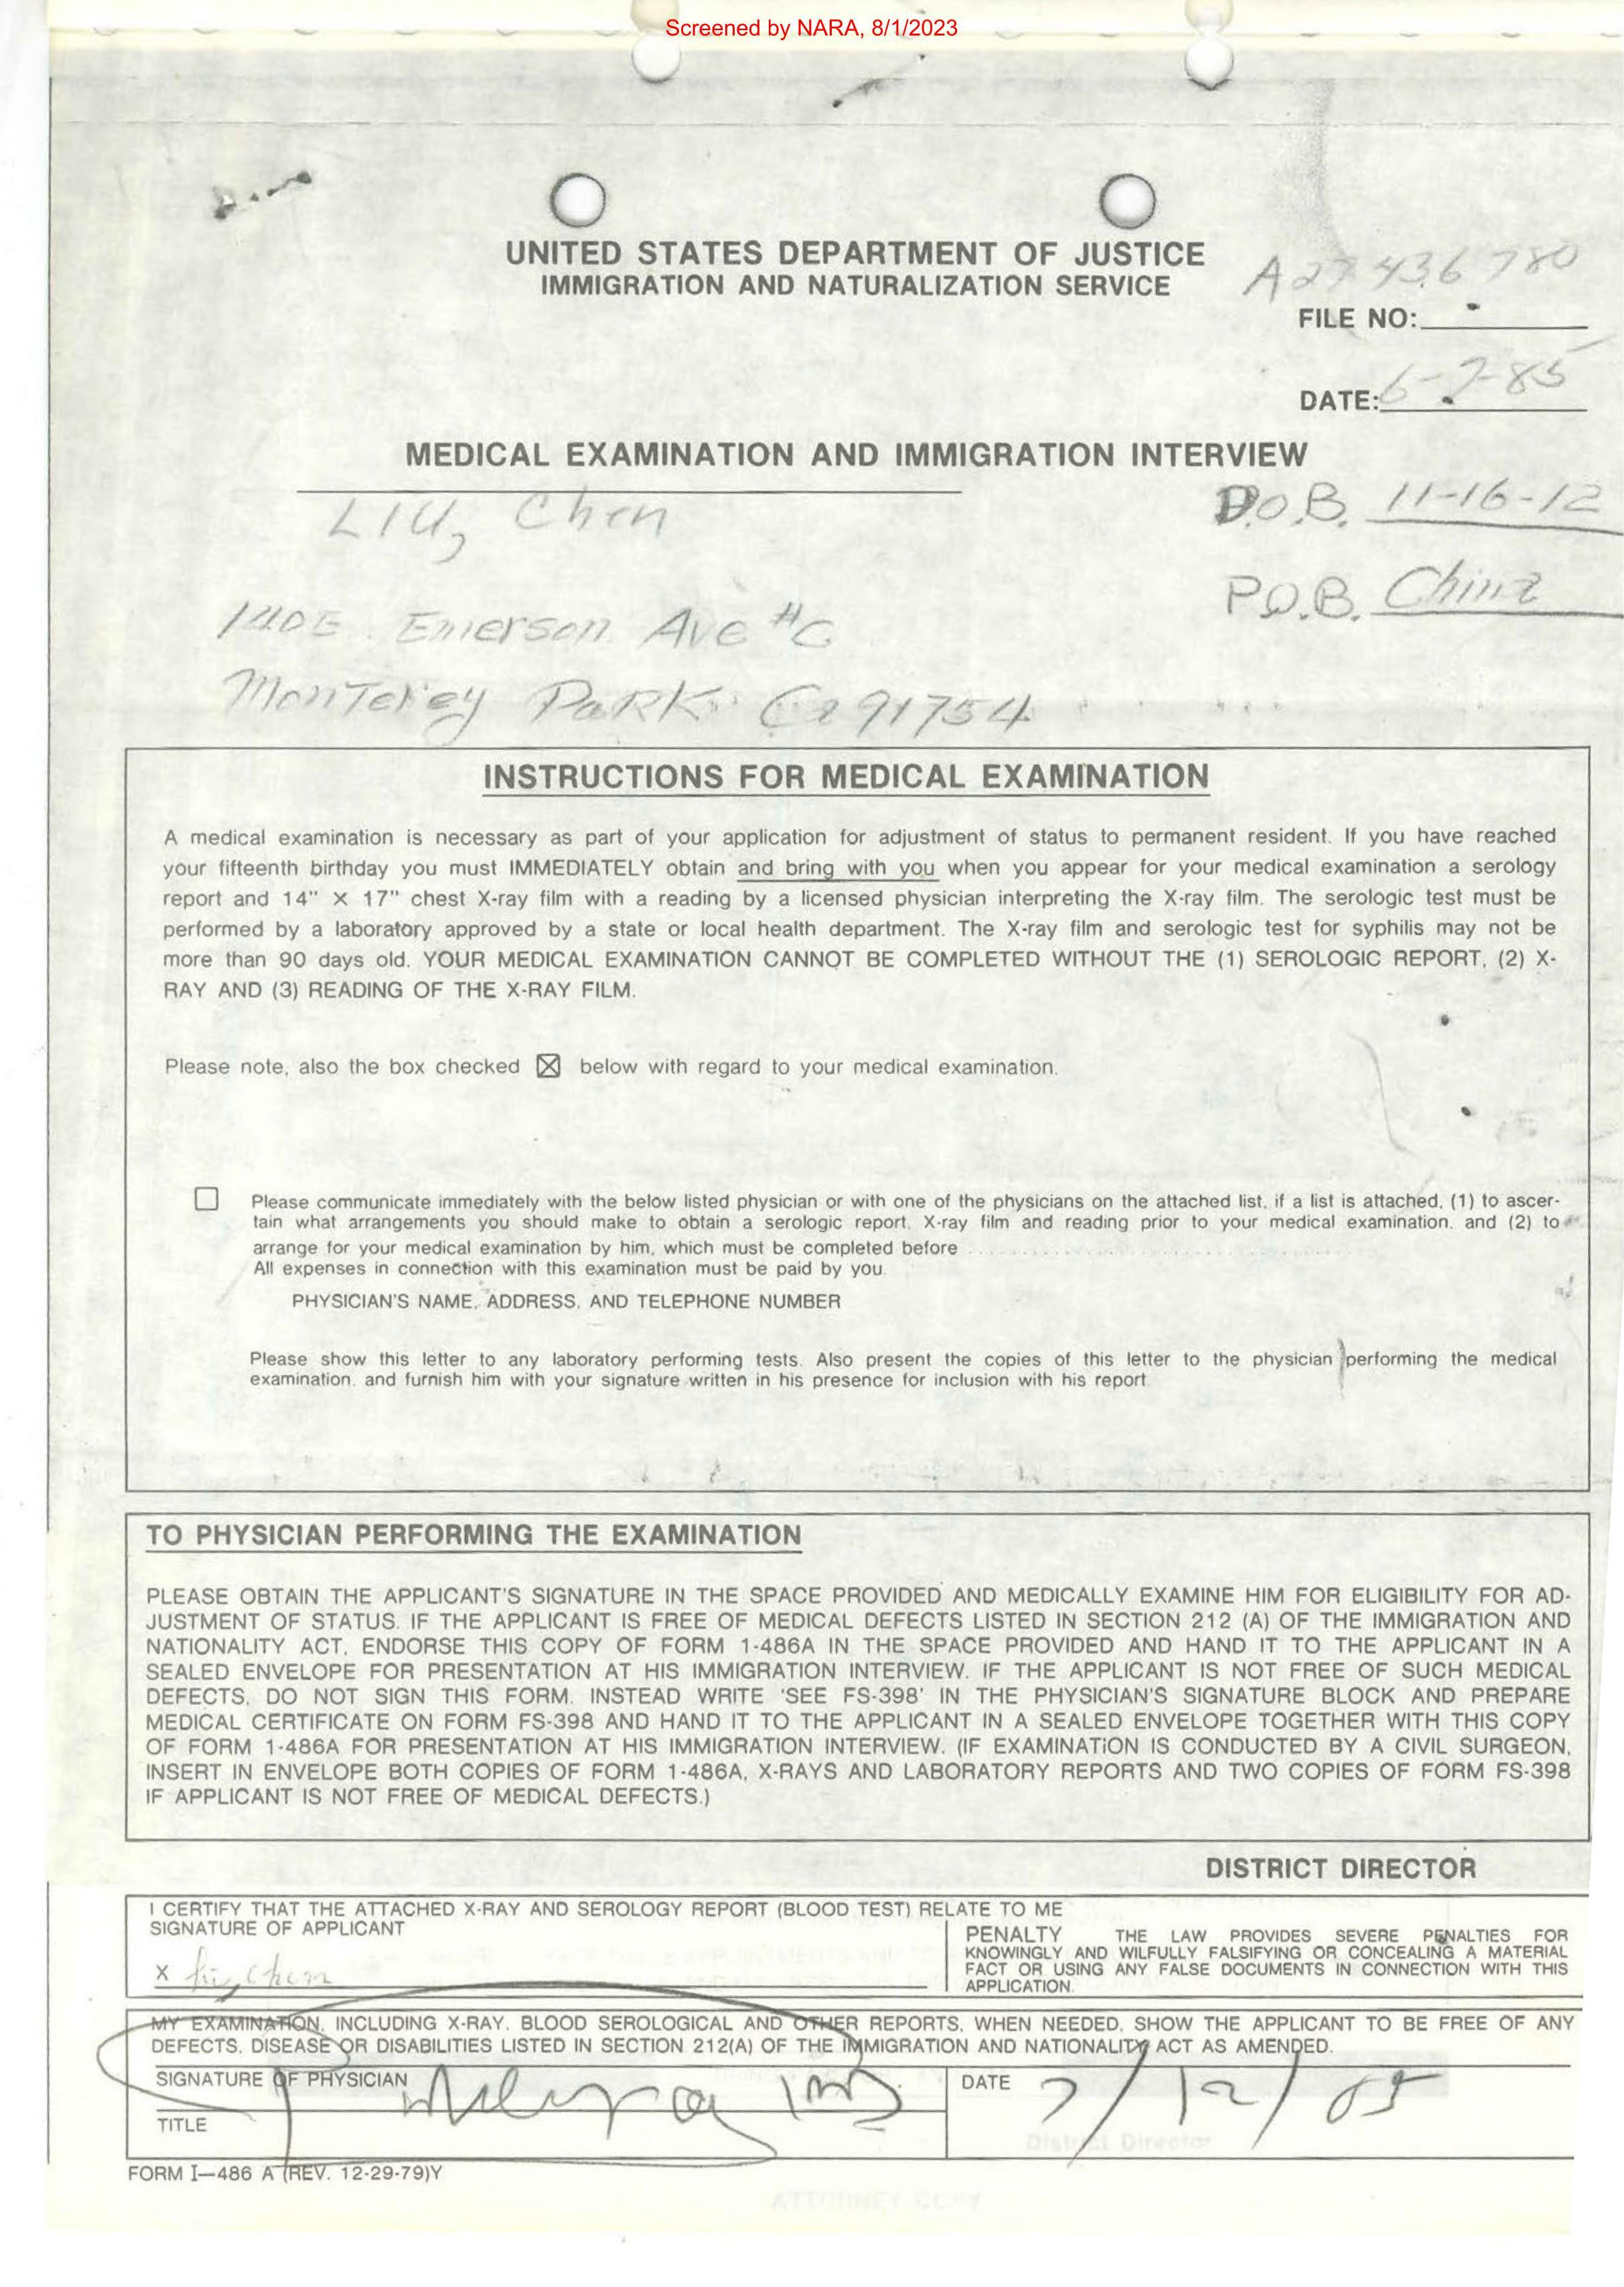 Screened by NARA, 8/1/2023
UNITED STATES DEPARTMENT OF JUSTICE
IMMIGRATION AND NATURALIZATION SERVICE
A27 436 780
FILE NO:
DATE: 6-7-85
MEDICAL EXAMINATION AND IMMIGRATION INTERVIEW
LIU, Chen
D.O.B. 11-16-12
P.O.B. China
140 E. Emerson Ave #C
Monterey Park Ca 91754
INSTRUCTIONS FOR MEDICAL EXAMINATION
A medical examination is necessary as part of your application for adjustment of status to permanent resident. If you have reached
your fifteenth birthday you must IMMEDIATELY obtain and bring with you when you appear for your medical examination a serology
report and 14" X 17" chest X-ray film with a reading by a licensed physician interpreting the X-ray film. The serologic test must be
performed by a laboratory approved by a state or local health department. The X-ray film and serologic test for syphilis may not be
more than 90 days old. YOUR MEDICAL EXAMINATION CANNOT BE COMPLETED WITHOUT THE (1) SEROLOGIC REPORT, (2) X-
RAY AND (3) READING OF THE X-RAY FILM.
Please note, also the box checked ☒ below with regard to your medical examination.
☐ Please communicate immediately with the below listed physician or with one of the physicians on the attached list, if a list is attached, (1) to ascer-
tain what arrangements you should make to obtain a serologic report, X-ray film and reading prior to your medical examination, and (2) to
arrange for your medical examination by him, which must be completed before
All expenses in connection with this examination must be paid by you.
PHYSICIAN'S NAME, ADDRESS, AND TELEPHONE NUMBER
Please show this letter to any laboratory performing tests. Also present the copies of this letter to the physician performing the medical
examination, and furnish him with your signature written in his presence for inclusion with his report.
TO PHYSICIAN PERFORMING THE EXAMINATION
PLEASE OBTAIN THE APPLICANT'S SIGNATURE IN THE SPACE PROVIDED AND MEDICALLY EXAMINE HIM FOR ELIGIBILITY FOR AD-
JUSTMENT OF STATUS. IF THE APPLICANT IS FREE OF MEDICAL DEFECTS LISTED IN SECTION 212 (A) OF THE IMMIGRATION AND
NATIONALITY ACT, ENDORSE THIS COPY OF FORM 1-486A IN THE SPACE PROVIDED AND HAND IT TO THE APPLICANT IN A
SEALED ENVELOPE FOR PRESENTATION AT HIS IMMIGRATION INTERVIEW. IF THE APPLICANT IS NOT FREE OF SUCH MEDICAL
DEFECTS, DO NOT SIGN THIS FORM. INSTEAD WRITE 'SEE FS-398' IN THE PHYSICIAN'S SIGNATURE BLOCK AND PREPARE
MEDICAL CERTIFICATE ON FORM FS-398 AND HAND IT TO THE APPLICANT IN A SEALED ENVELOPE TOGETHER WITH THIS COPY
OF FORM 1-486A FOR PRESENTATION AT HIS IMMIGRATION INTERVIEW. (IF EXAMINATION IS CONDUCTED BY A CIVIL SURGEON,
INSERT IN ENVELOPE BOTH COPIES OF FORM 1-486A, X-RAYS AND LABORATORY REPORTS AND TWO COPIES OF FORM FS-398
IF APPLICANT IS NOT FREE OF MEDICAL DEFECTS.)
DISTRICT DIRECTOR
I CERTIFY THAT THE ATTACHED X-RAY AND SEROLOGY REPORT (BLOOD TEST) RELATE TO ME
SIGNATURE OF APPLICANT
X Liu, Chen
PENALTY THE LAW PROVIDES SEVERE PENALTIES FOR
KNOWINGLY AND WILFULLY FALSIFYING OR CONCEALING A MATERIAL
FACT OR USING ANY FALSE DOCUMENTS IN CONNECTION WITH THIS
APPLICATION.
MY EXAMINATION, INCLUDING X-RAY, BLOOD SEROLOGICAL AND OTHER REPORTS, WHEN NEEDED, SHOW THE APPLICANT TO BE FREE OF ANY
DEFECTS, DISEASE OR DISABILITIES LISTED IN SECTION 212(A) OF THE IMMIGRATION AND NATIONALITY ACT AS AMENDED.
SIGNATURE OF PHYSICIAN
MD
DATE 7/12/85
TITLE
District Director
FORM I—486 A (REV. 12-29-79)Y
ATTORNEY COPY